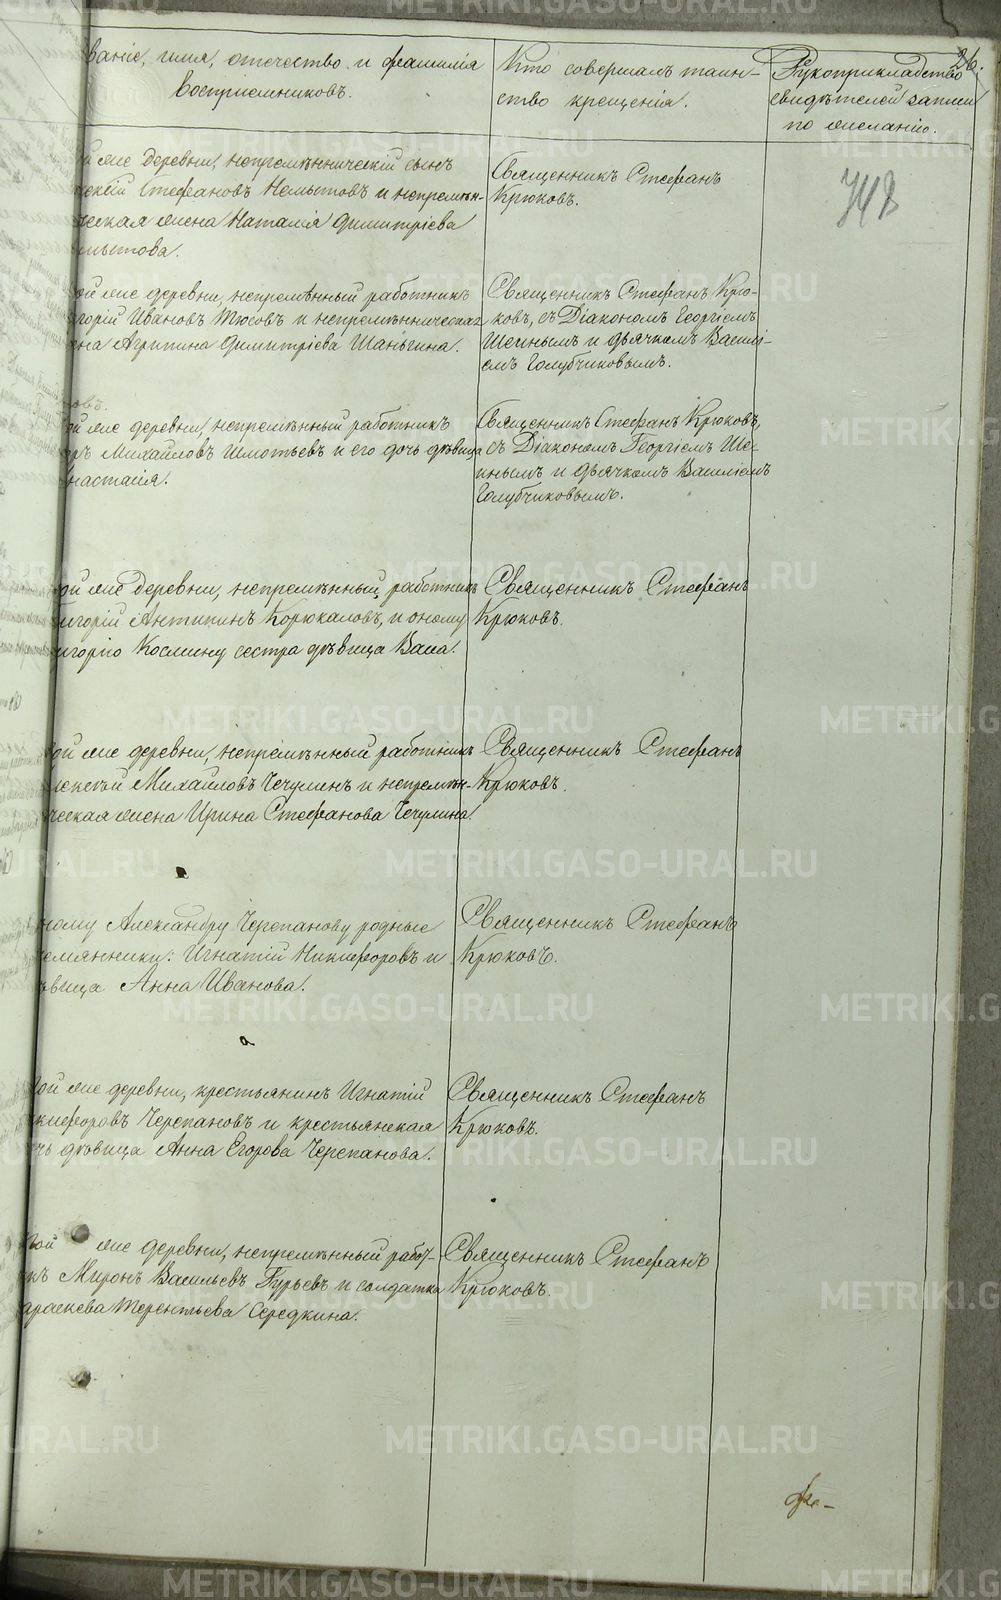 26.
ваніе, имя, отчество и фамилія
воспріемниковъ.
Кто совершалъ таин-
ство крещенія.
Рукоприкладство
свидѣтелей записи
по желанію.
748
й же деревни, непремѣнническій сынъ
ксѣй Стефановъ Немытовъ и непремѣн-
ческая жена Наталія Димитріева
мытова.
Священникъ Стефанъ
Крюковъ.
ой же деревни, непремѣнный работникъ
горій Ивановъ Тюсовъ и непремѣнническая
на Агрипина Димитріева Шаньгина.
Священникъ Стефанъ Крю-
ковъ, съ Діакономъ Георгіемъ
Шеинымъ и дьячкомъ Василі-
емъ Голубчиковымъ.
овъ.
ой же деревни, непремѣнный работникъ
ръ Михайловъ Шмотьевъ и его дочь дѣвица
настасія.
Священникъ Стефанъ Крюковъ,
съ Діакономъ Георгіемъ Ше-
инымъ и дьячкомъ Василіемъ
Голубчиковымъ.
ой же деревни, непремѣнный работникъ
игорій Антипинъ Корюкаловъ, и оному
игорію Космину сестра дѣвица Васса.
Священникъ Стефанъ
Крюковъ.
ой же деревни, непремѣнный работникъ
лексѣй Михайловъ Чечулинъ и непремѣн-
ческая жена Ирина Стефанова Чечулина.
Священникъ Стефанъ
Крюковъ.
ному Александру Черепанову родные
емянники: Игнатій Никифоровъ и
ѣвица Анна Иванова.
Священникъ Стефанъ
Крюковъ.
ой же деревни, крестьянинъ Игнатій
кифоровъ Черепановъ и крестьянская
чь дѣвица Анна Егорова Черепанова.
Священникъ Стефанъ
Крюковъ.
ой же деревни, непремѣнный работ-
къ Миронъ Васильевъ Гурьевъ и солдатка
араскева Терентьева Середкина.
Священникъ Стефанъ
Крюковъ.
METRIKI.GASO-URAL.RU